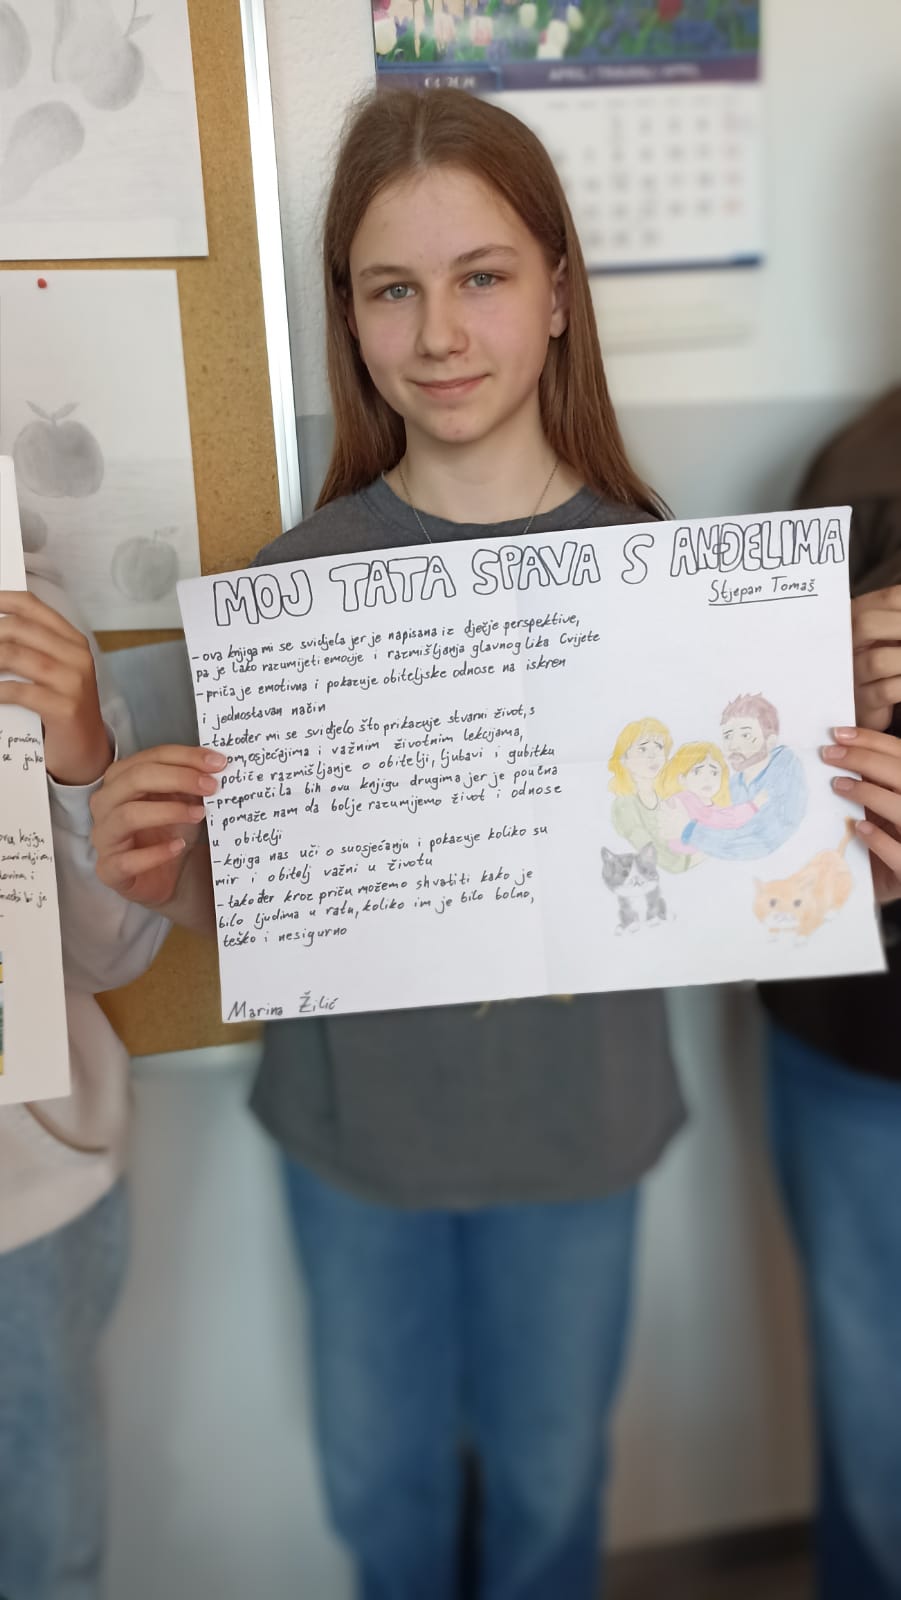 MOJ TATA SPAVA S ANĐELIMA
Stjepan Tomaš
- ova knjiga mi se svidjela jer je napisana iz dječje perspektive,
pa je lako razumijeti emocije i razmišljanja glavnog lika Cvijete
- priča je emotivna i pokazuje obiteljske odnose na iskren
i jednostavan način
- također mi se svidjelo što prikazuje stvarni život, s
osjećajima i važnim životnim lekcijama,
potiče razmišljanje o obitelji, ljubavi i gubitku
- preporučila bih ovu knjigu drugima jer je poučna
i pomaže nam da bolje razumijemo život i odnose
u obitelji
- knjiga nas uči o suosjećanju i pokazuje koliko su
mir i obitelj važni u životu
- također kroz priču možemo shvatiti kako je
bilo ljudima u ratu, koliko im je bilo bolno,
teško i nesigurno
Marina Žilić
se jako
knjigu
bi je